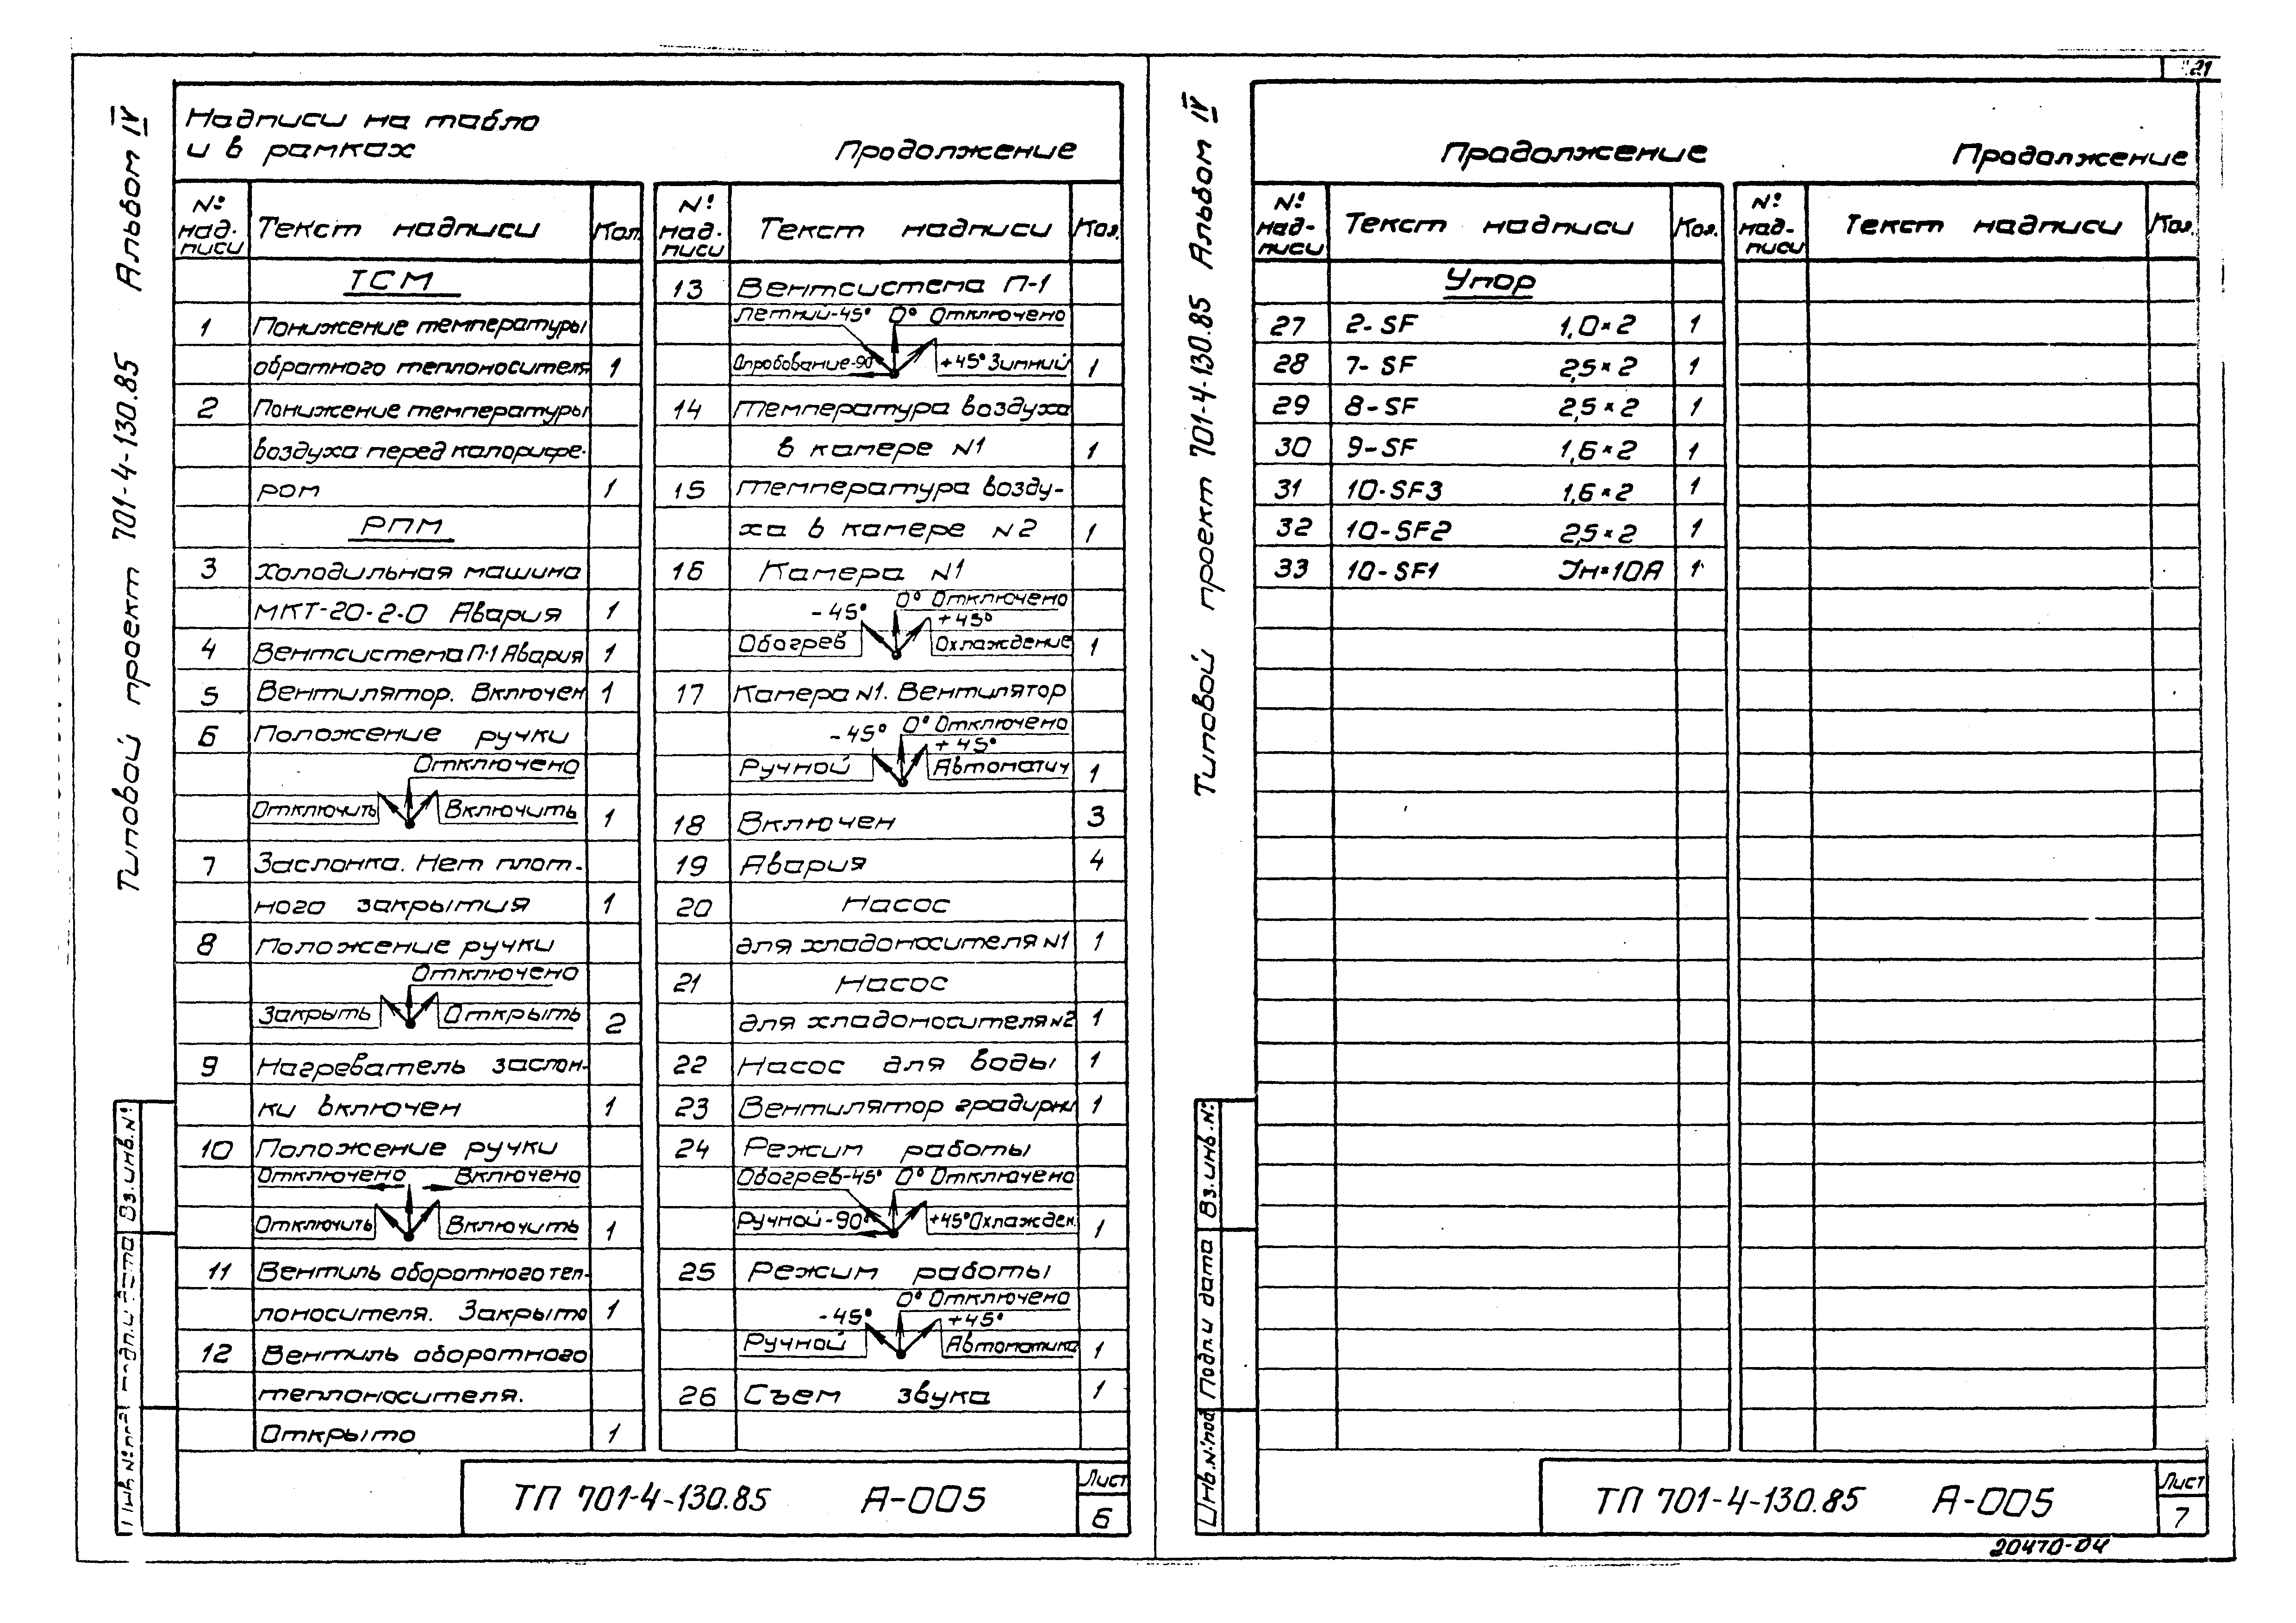 21
Типовой проект 701-4-130.85 Альбом IV
Надписи на табло
и в рамках
Продолжение
№ надписи Текст надписи Кол.
ТСМ
1 Понижение температуры
обратного теплоносителя 1
2 Понижение температуры
воздуха перед калорифе-
ром 1
РПМ
3 Холодильная машина
МКТ-20-2-0 Авария 1
4 Вентсистема П-1 Авария 1
5 Вентилятор. Включен 1
6 Положение ручки
Отключено
Отключить Включить 1
7 Заслонка. Нет плот-
ного закрытия 1
8 Положение ручки
Отключено
Закрыть Открыть 2
9 Нагреватель заслон-
ки включен 1
10 Положение ручки
Отключено Включено
Отключить Включить 1
11 Вентиль оборотного теп-
лоносителя. Закрыто 1
12 Вентиль оборотного
теплоносителя.
Открыто 1
№ надписи Текст надписи Кол.
13 Вентсистема П-1
Летний-45° 0° Отключено
Опробование-90° +45° Зимний 1
14 Температура воздуха
в камере №1 1
15 Температура возду-
ха в камере №2 1
16 Камера №1
0° Отключено
-45° +45°
Обогрев Охлаждение 1
17 Камера №1. Вентилятор
0° Отключено
-45° +45°
Ручной Автоматич 1
18 Включен 3
19 Авария 4
20 Насос
для хладоносителя №1 1
21 Насос
для хладоносителя №2 1
22 Насос для воды 1
23 Вентилятор градирни 1
24 Режим работы
Обогрев-45° 0° Отключено
Ручной-90° +45° Охлажден. 1
25 Режим работы
0° Отключено
-45° +45°
Ручной Автоматика 1
26 Съем звука 1
Вз.инв.№
ТП 701-4-130.85 А-005
Лист
6
Типовой проект 701-4-130.85 Альбом IV
Продолжение
Продолжение
№ над-писи Текст надписи Кол.
№ над-писи Текст надписи Кол.
Упор
27 2-SF 1,0×2 1
28 7-SF 2,5×2 1
29 8-SF 2,5×2 1
30 9-SF 1,6×2 1
31 10-SF3 1,6×2 1
32 10-SF2 2,5×2 1
33 10-SF1 Jн=10А 1
Инв.№ под Подп. и дата Вз.инв.№
ТП 701-4-130.85 А-005
Лист
7
20470-04